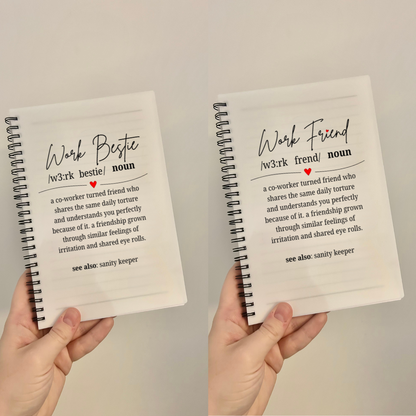 Work Bestie
/w3:rk bestie/ noun
a co-worker turned friend who
shares the same daily torture
and understands you perfectly
because of it. a friendship grown
through similar feelings of
irritation and shared eye rolls.
see also: sanity keeper
Work Friend
/w3:rk frend/ noun
a co-worker turned friend who
shares the same daily torture
and understands you perfectly
because of it. a friendship grown
through similar feelings of
irritation and shared eye rolls.
see also: sanity keeper